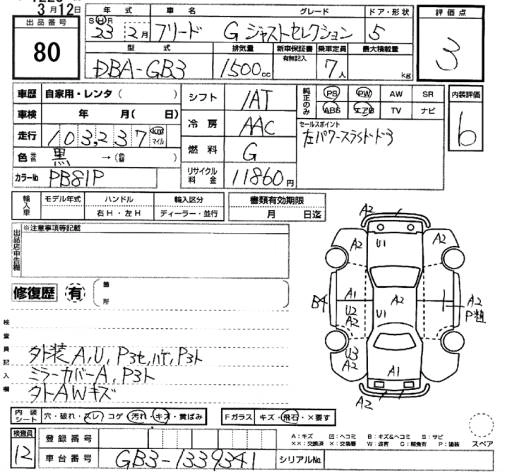 3月12日
出品番号
80
年式
S H R
23年2月
車名
フリード
グレード
G ジャストセレクション
ドア・形状
5
評価点
3
型式
DBA-GB3
排気量
1500cc
新車保証書
有無記入
乗車定員
7人
最大積載量
kg
車歴 自家用・レンタ( )
車検 年 月( 日)
走行 103,237 km マイル
色 黒 →( )
カラーNo PB81P
シフト 1AT
冷房 AAC
燃料 G
リサイクル料金 11860円
純正のみ
PS PW AW SR
ABS エアB TV ナビ
セールスポイント
左パワースライドドア
内装評価
6
輸入車
モデル年式 ハンドル 輸入区分
右H・左H ディーラー・並行
書類有効期限
月 日迄
出品店申告欄
※注意事項等記載
修復歴 有
箇所
検査員記入欄
外装A,U,P3セ,ハゲ,P3ト
ミラーカバーA,P3ト
外AWキズ
A2
A2 U1 A2
B4 A1 A2 A2
U2 P粗
A2 U1
U3
A2 A1 A2
A2
スペア
内装シート 穴・破れ・ズレ・コゲ 汚れ・キズ・黄ばみ
Fガラス キズ・飛石・×要す
検査員
12
登録番号
車台番号 GB3-1339341 シリアルNo.
A:キズ